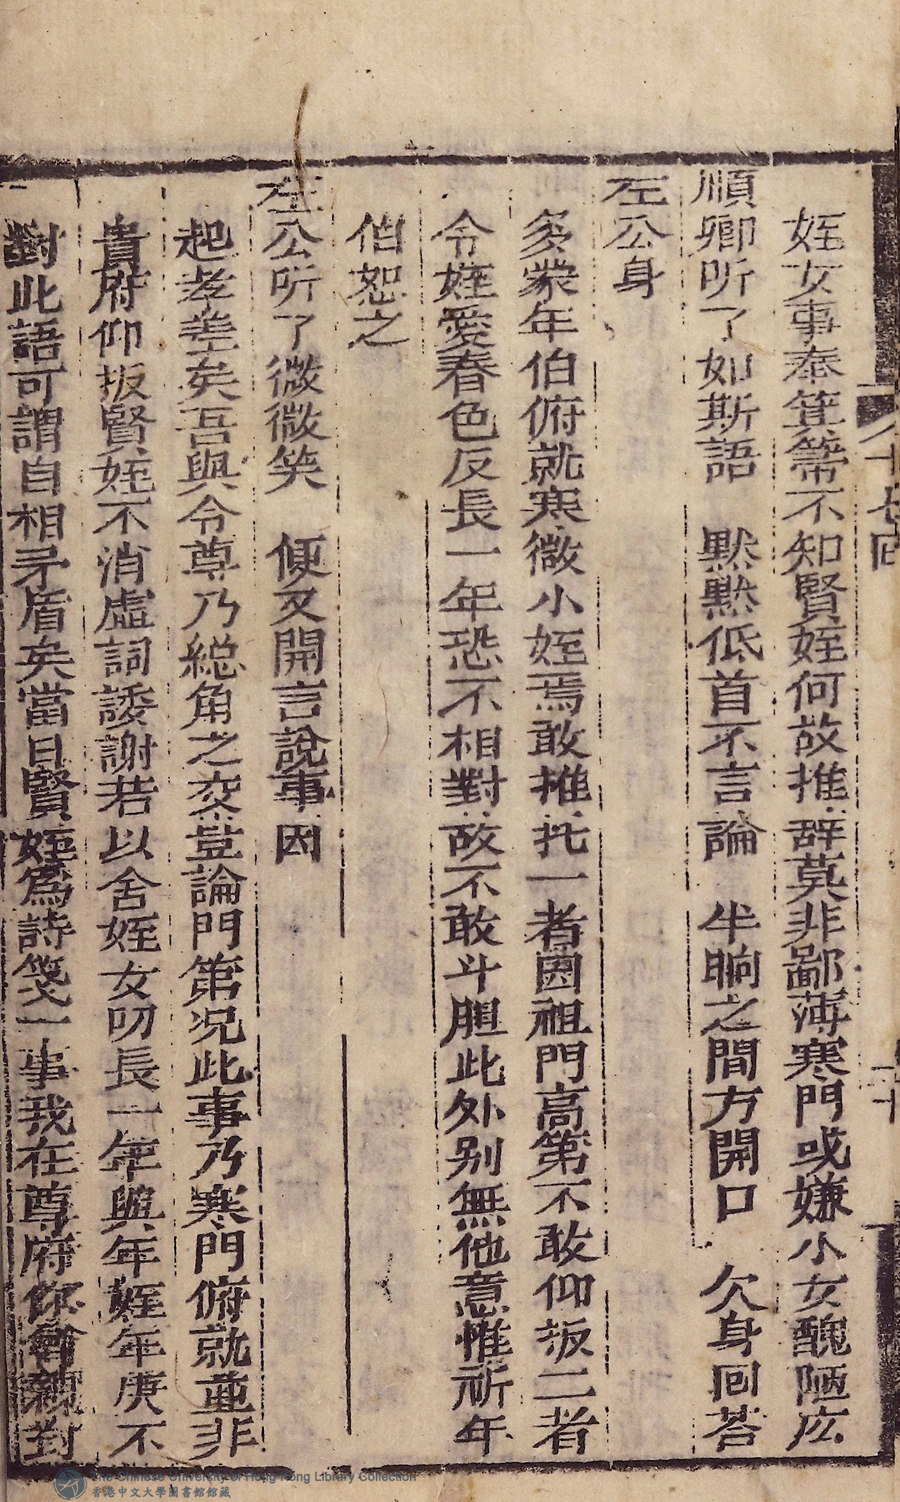 姪女事奉箕箒不知賢姪何故推辞莫非鄙薄寒門或嫌小女醜陋左
順卿听了如斯語　默默低首不言論　半晌之間方開口　欠身回荅
左公身
多蒙年伯俯就寒微小姪焉敢推托一者因祖門高第不敢仰扳二者
令姪愛春色反長一年恐不相對故不敢斗胆此外别無他意惟祈年
伯恕之
左公听了微微笑　便又開言說事因
起孝差矣吾與令尊乃総角之交豈論門第况此事乃寒門俯就並非
貴府仰扳賢姪不消虛詞諉謝若以舍姪女叨長一年與年姪年庚不
對此語可謂自相矛盾矣當日賢姪爲詩箋一事我在尊府你曾親對
The Chinese University of Hong Kong Library Collection
香港中文大學圖書館館藏